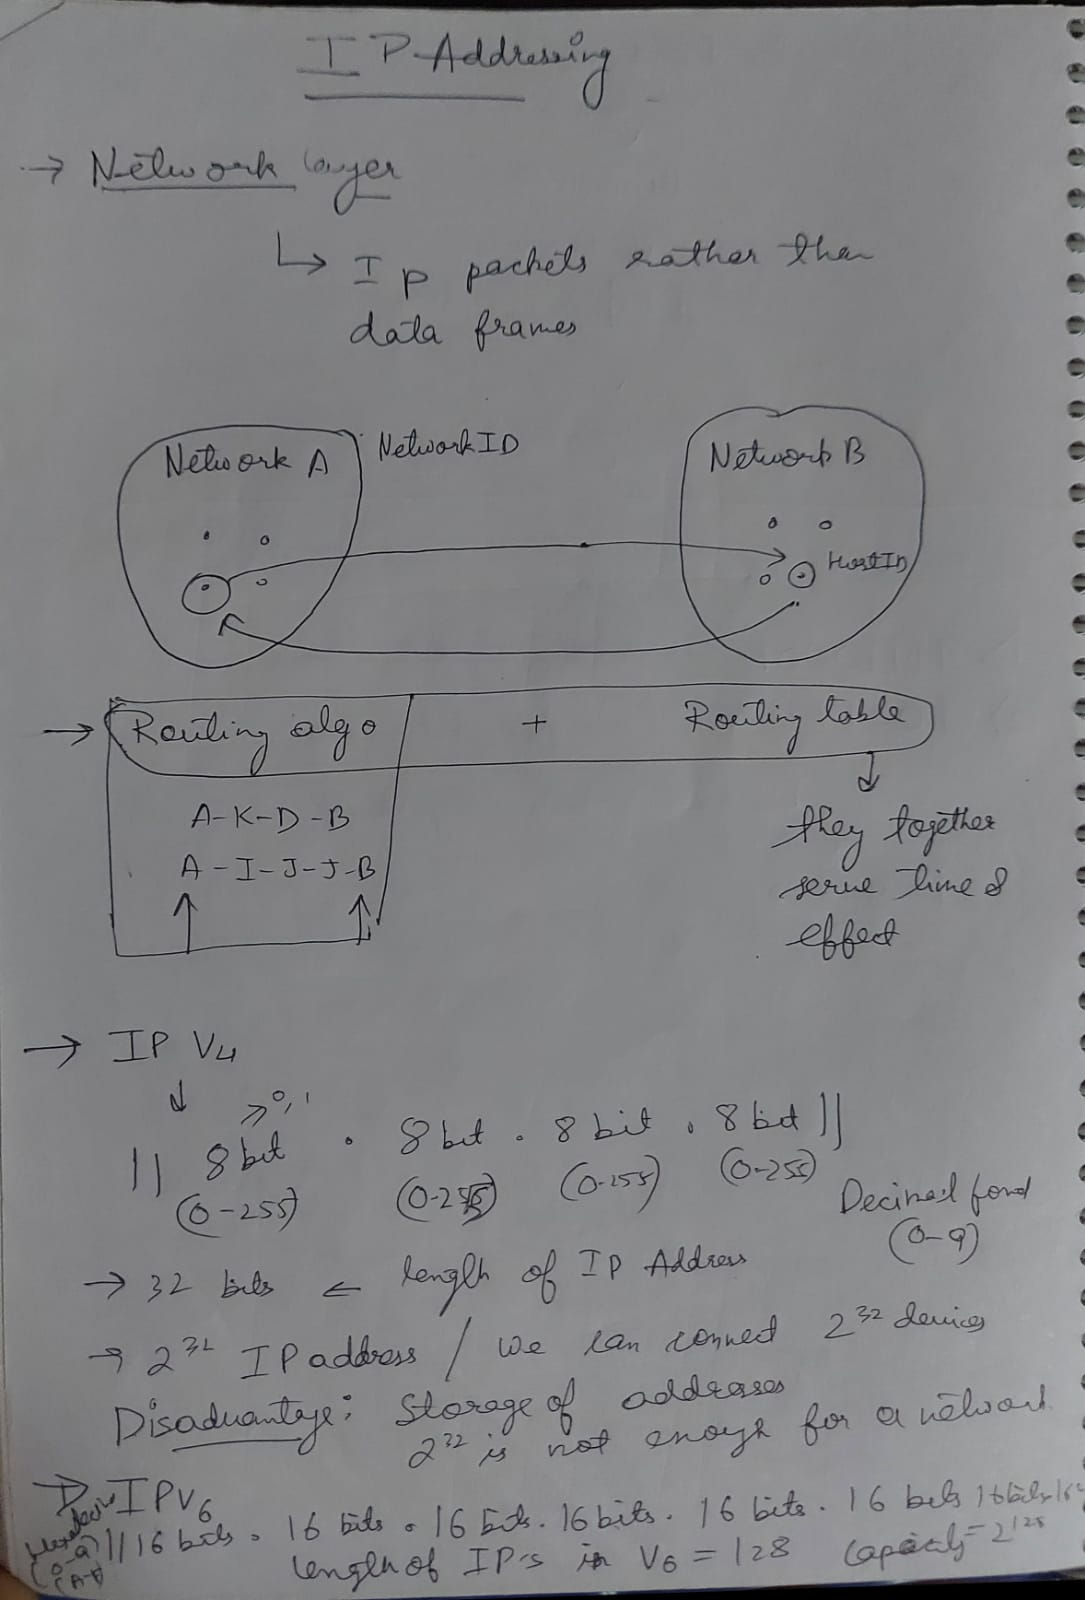 IP Addressing
→ Network layer
↳ Ip packets rather than
data frames
Network A
Network ID
Network B
Host ID
→ Routing algo + Routing table
A-K-D-B
A-I-J-J-B
they together
serve time &
effect
→ IP V4
0,1
|| 8 bit . 8 bit . 8 bit . 8 bit ||
(0-255) (0-255) (0-255) (0-255)
Decimal
(0-9)
→ 32 bits ← length of IP Address
→ 2^32 IP address / we can connect 2^32 devices
Disadvantage: Storage of addresses
2^32 is not enough for a network.
→ IPV6
(0-9)
(A-F)
|| 16 bits . 16 bits . 16 bits . 16 bits . 16 bits . 16 bits 16 bits 16
length of IP's in V6 = 128 Capacity = 2^128